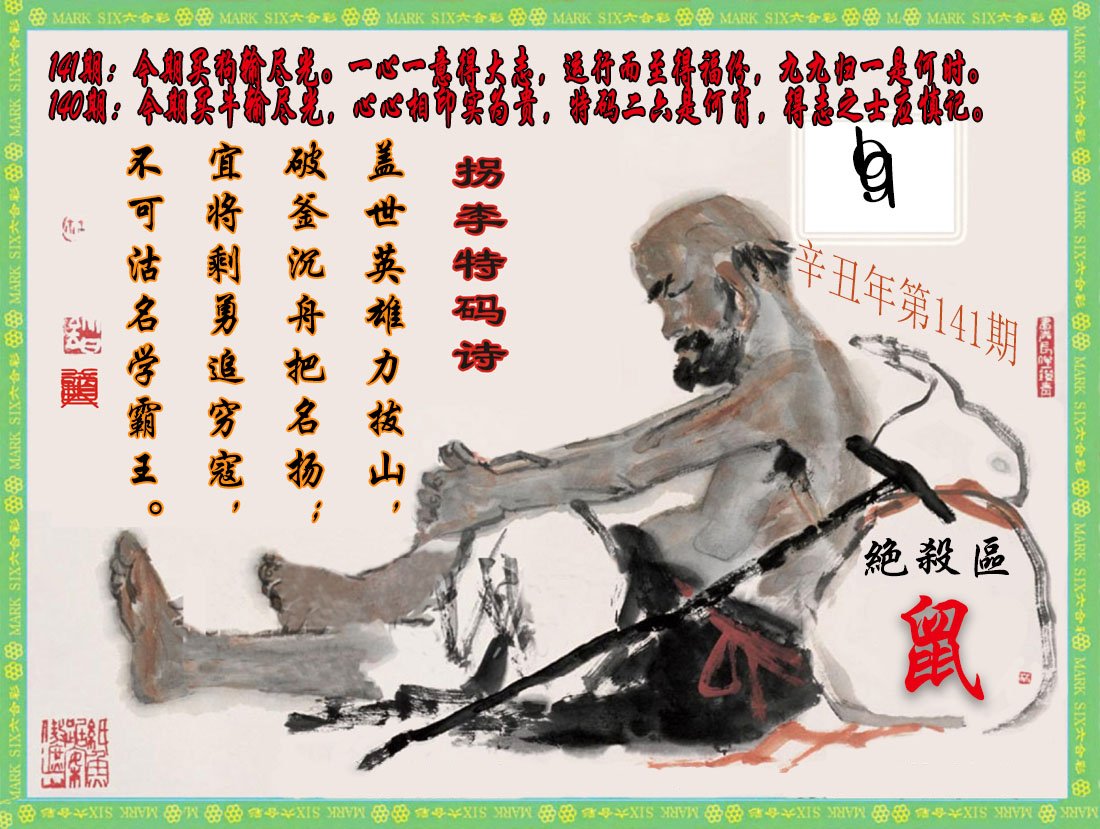 141期：今期买狗输尽光。一心一意得大志，运行而至得福份，九九归一是何时。
140期：今期买牛输尽光，心心相印实为贵，特码二六是何肖，得志之士应慎记。
拐李特码诗
盖世英雄力拔山，
破釜沉舟把名扬；
宜将剩勇追穷寇，
不可沽名学霸王。
辛丑年第141期
絕殺區
鼠
MARK SIX六合彩